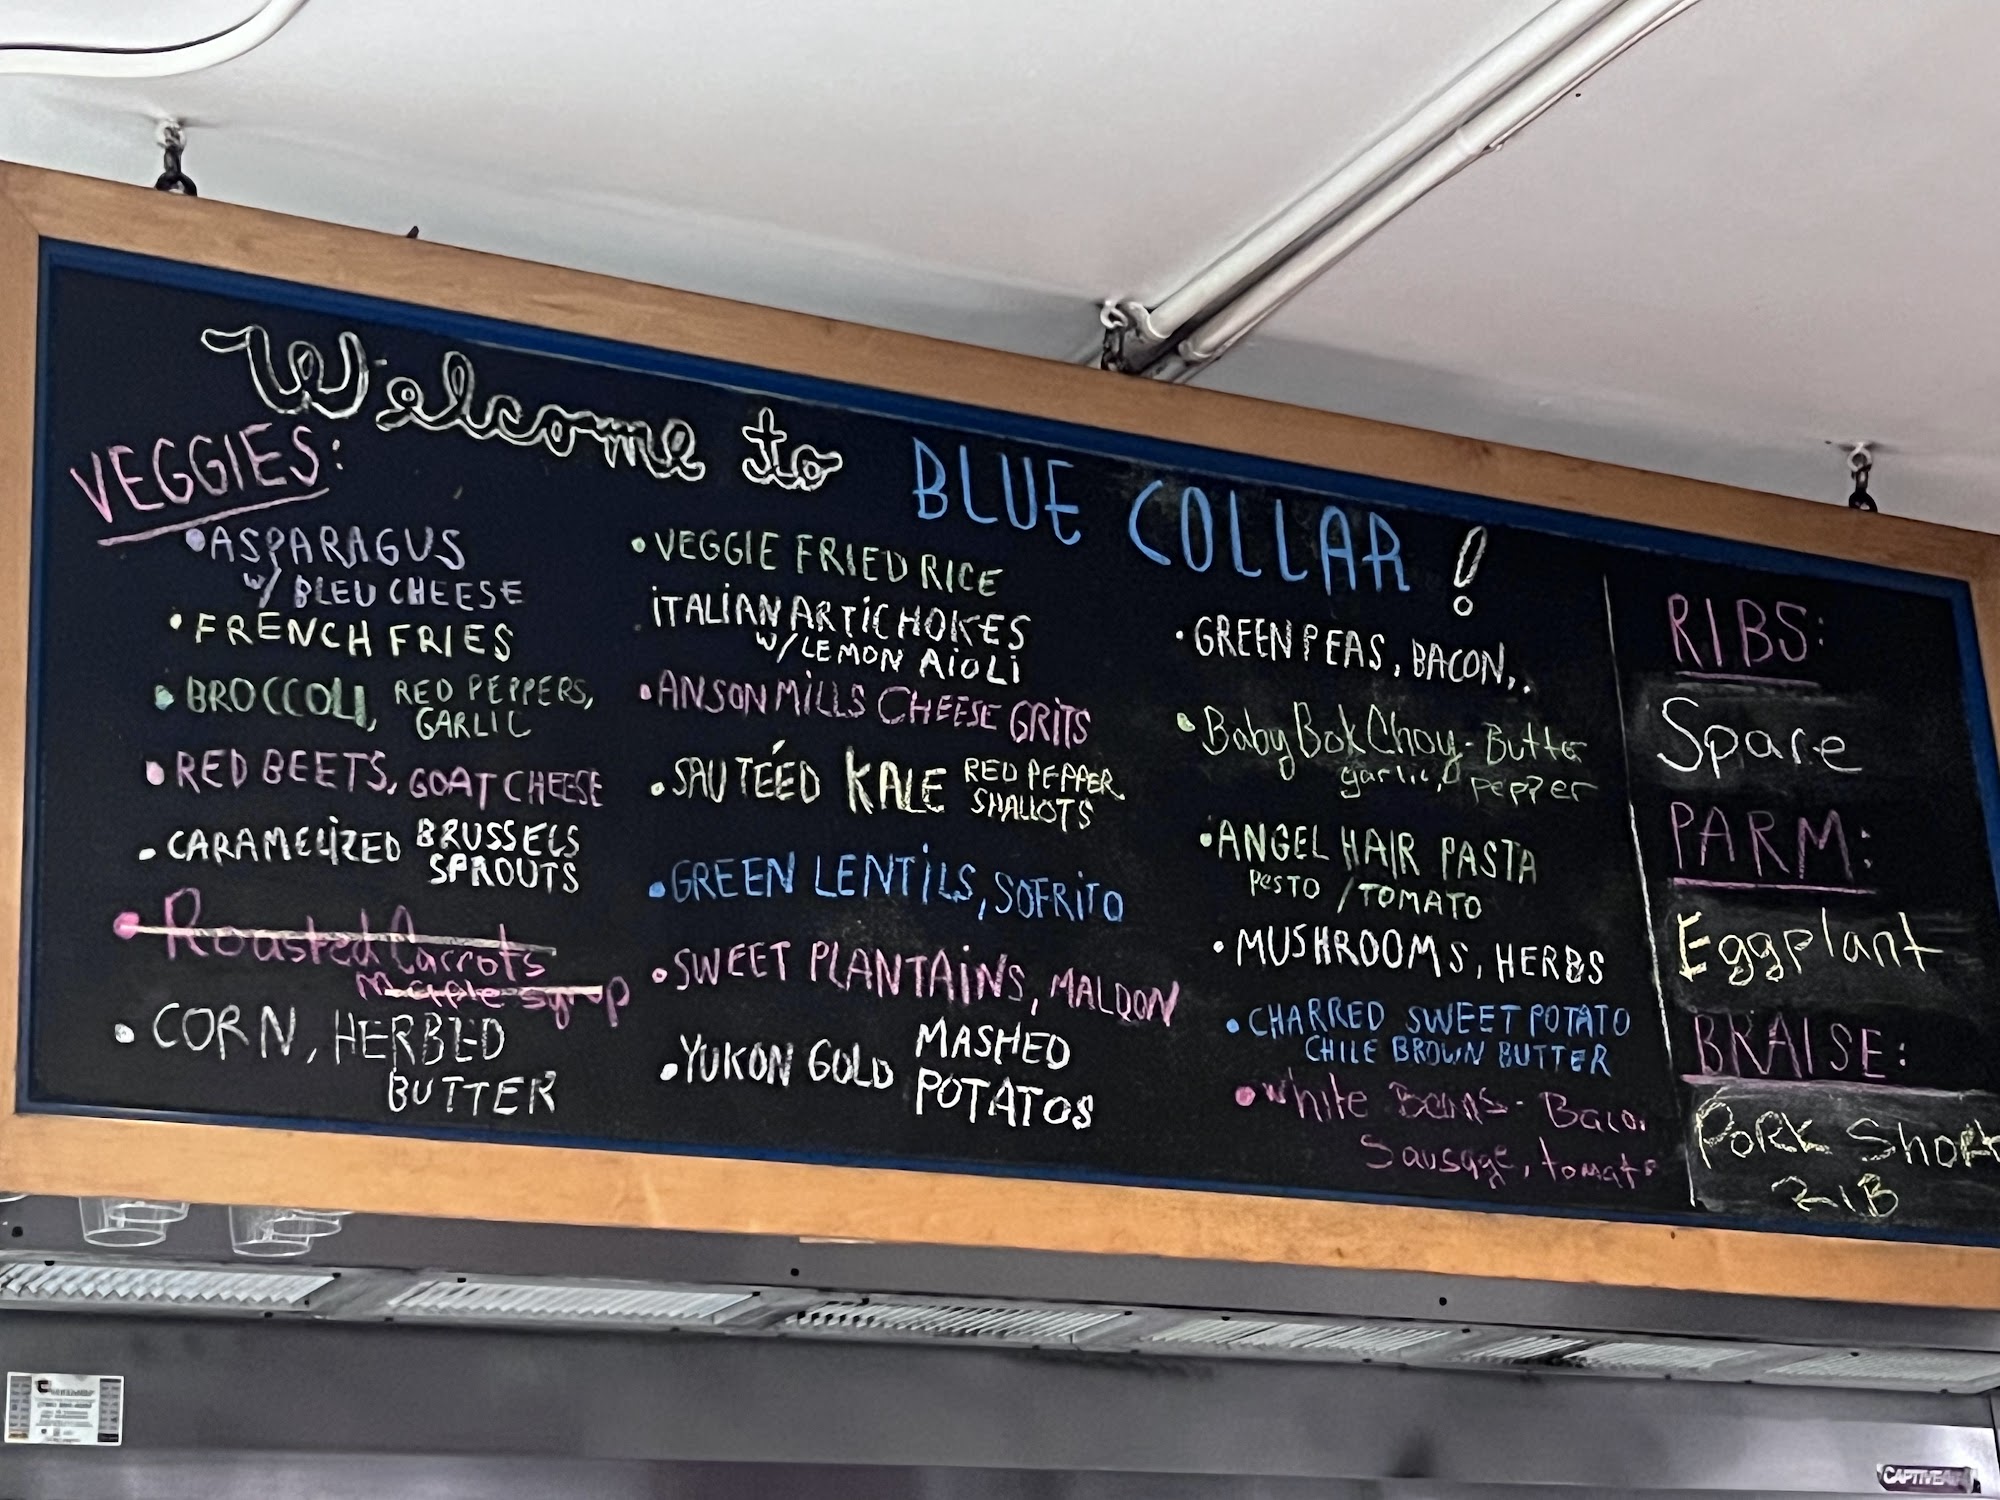 Welcome to BLUE COLLAR!
VEGGIES:
•ASPARAGUS
w/ BLEU CHEESE
•FRENCH FRIES
•BROCCOLI, RED PEPPERS,
GARLIC
•RED BEETS, GOAT CHEESE
•CARAMELIZED BRUSSELS
SPROUTS
•Roasted Carrots
Maple syrup
•CORN, HERBED
BUTTER
•VEGGIE FRIED RICE
ITALIAN ARTICHOKES
W/LEMON AIOLI
•ANSON MILLS CHEESE GRITS
•SAUTÉED KALE RED PEPPER
SHALLOTS
•GREEN LENTILS, SOFRITO
•SWEET PLANTAINS, MALDON
•YUKON GOLD MASHED
POTATOS
•GREEN PEAS, BACON,.
•Baby Bok Choy - Butter
garlic, pepper
•ANGEL HAIR PASTA
PESTO / TOMATO
•MUSHROOMS, HERBS
•CHARRED SWEET POTATO
CHILE BROWN BUTTER
•White Beans - Bacon
Sausage, tomato
RIBS:
Spare
PARM:
Eggplant
BRAISE:
Pork Short
2-1B
CAPTIVEAIRE